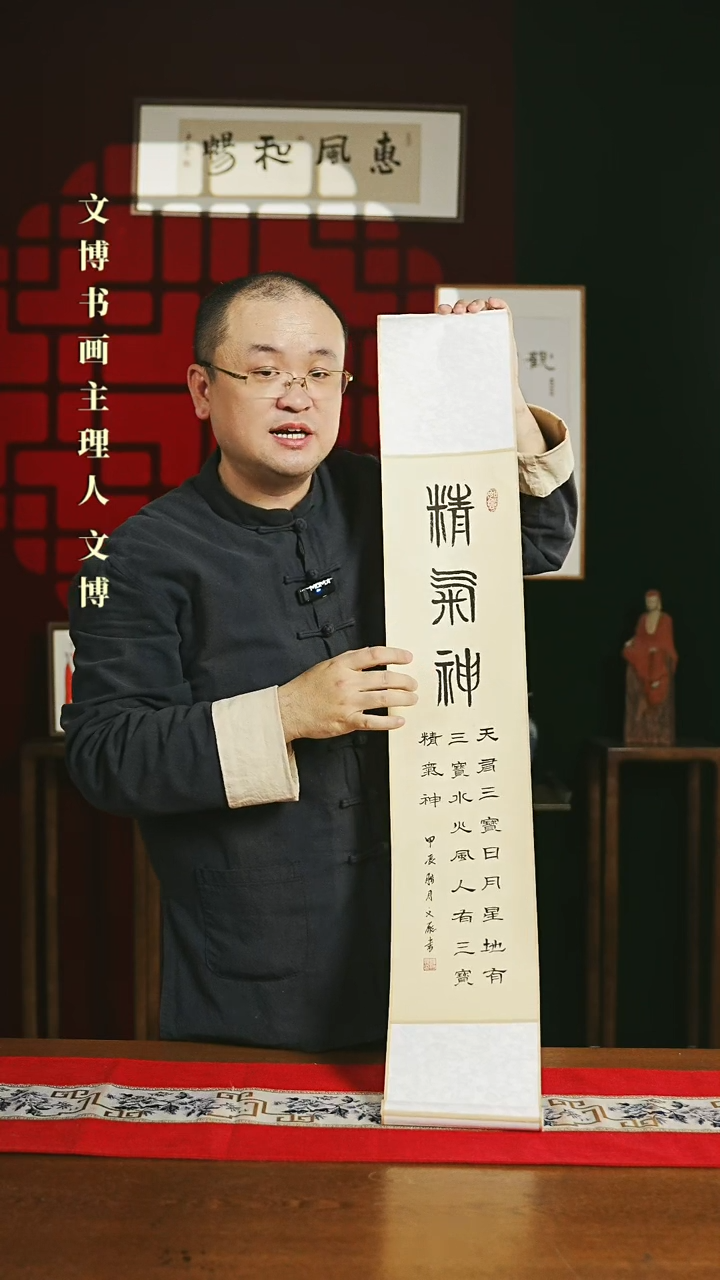 惠風和暢
文博书画主理人 文博
觀
精氣神
天有三寶日月星地有
三寶水火風人有三寶
精氣神
甲辰